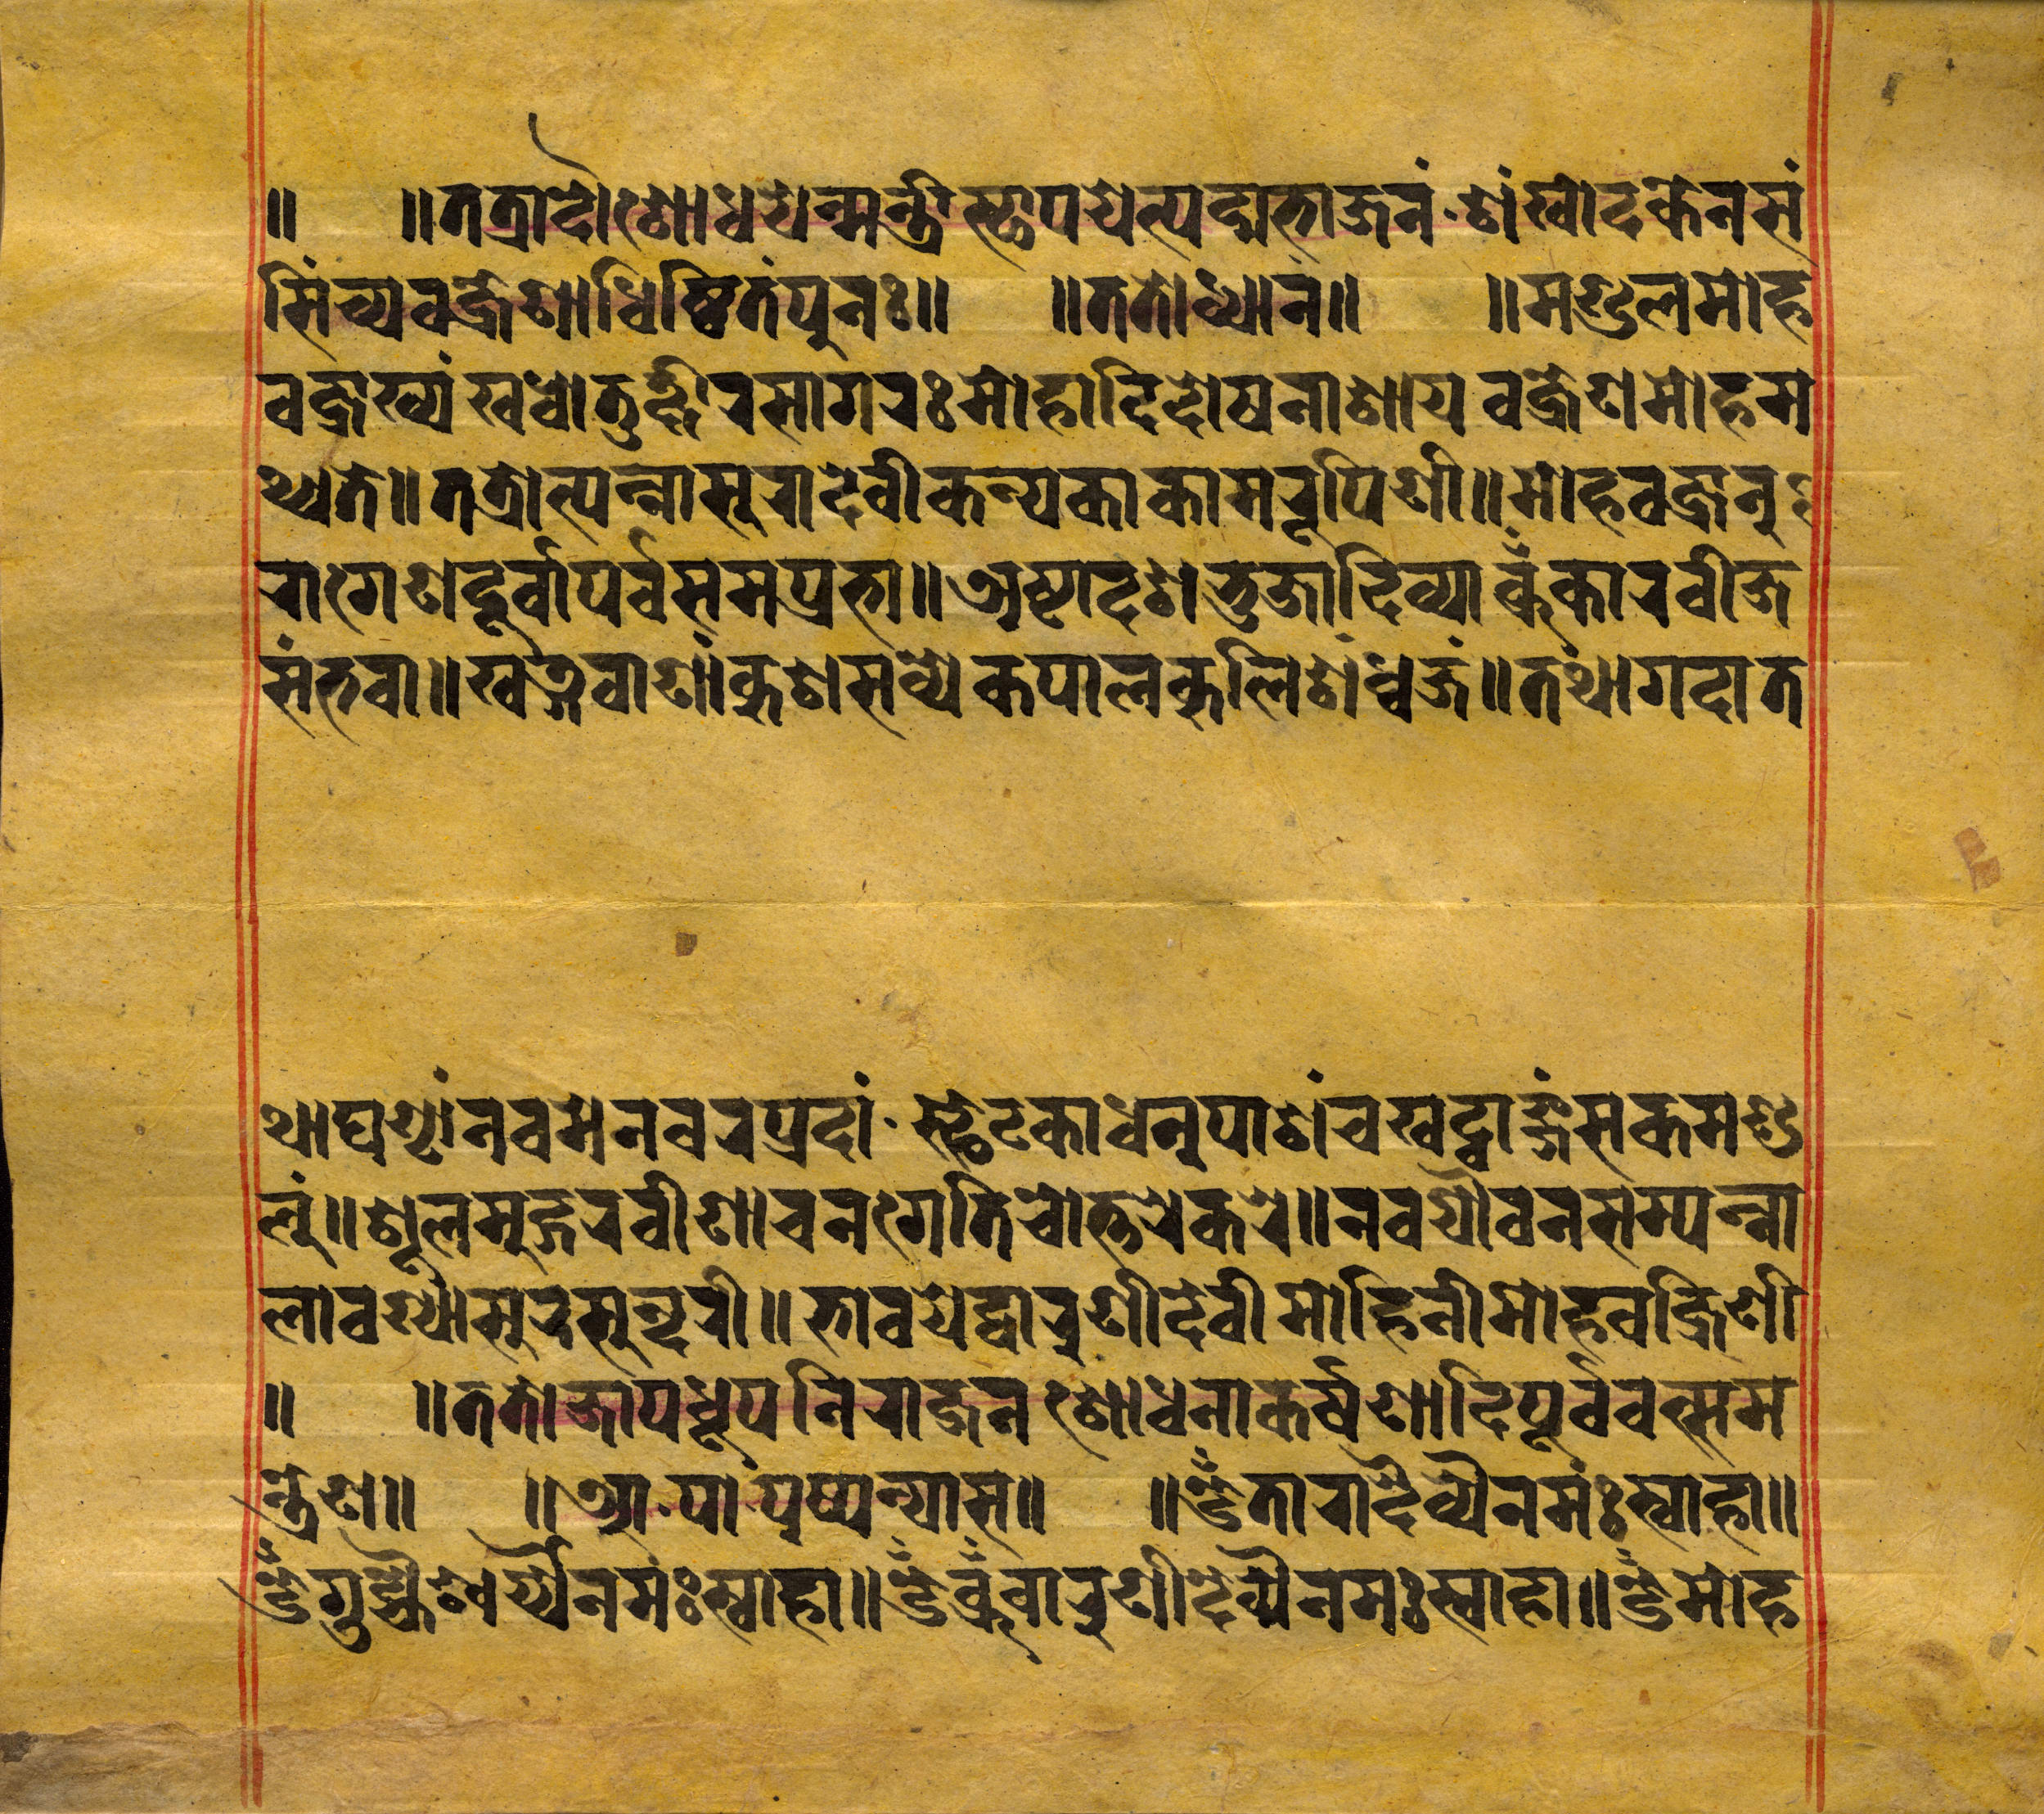 ॥ ॥ततादौशोधयेन्मन्त्रीस्थापयेत्पद्मभाजनं·शंखोदकेनसं
सिंच्यवज्रेणाधिष्ठितंपुनः॥ ॥ततोध्यानं॥ ॥मण्डलमोह
वज्राख्यं खधोतुर्क्षीरसागरःमोहादिदोषनाशाय वज्रेणमोहम
थ्यते॥तत्रोत्पन्नासूरादेवीकन्यकाकामरूपिणी॥मोहवज्रानु
रागेणदूर्वापर्वसमप्रभा॥अष्टादशभुजादिव्या व्रूँकारवीज
संभवा॥खड्गवाणांकुशसव्येकपालकुलिशंध्वजं॥तंथागदात
थाघण्टांनवमेनवरप्रदां·स्फेटकाधनुपाशंचखट्वाङ्गंसकमण्ड
लुं॥शूलमुद्गरवीणाचनगेतिचोत्तरेकरे॥नवयौवनसम्पन्ना
लावण्यासुरसुन्दरी॥भावयेद्वारुणीदेवीमोहिनीमोहवज्रिणी
॥ ॥ततोजापधूपनिराजनशोधनाकर्षणादिपूर्ववत्समम
न्त्रेण॥ ॥आ·पा·पुष्पन्यास॥ ॥ॐतारादैव्यैनमंःस्वाहा॥
ॐगुह्येश्वर्य्यैनमंःस्वाहा॥ॐव्रूँवारुणीदेव्यैनमःस्वाहा॥ॐमोह